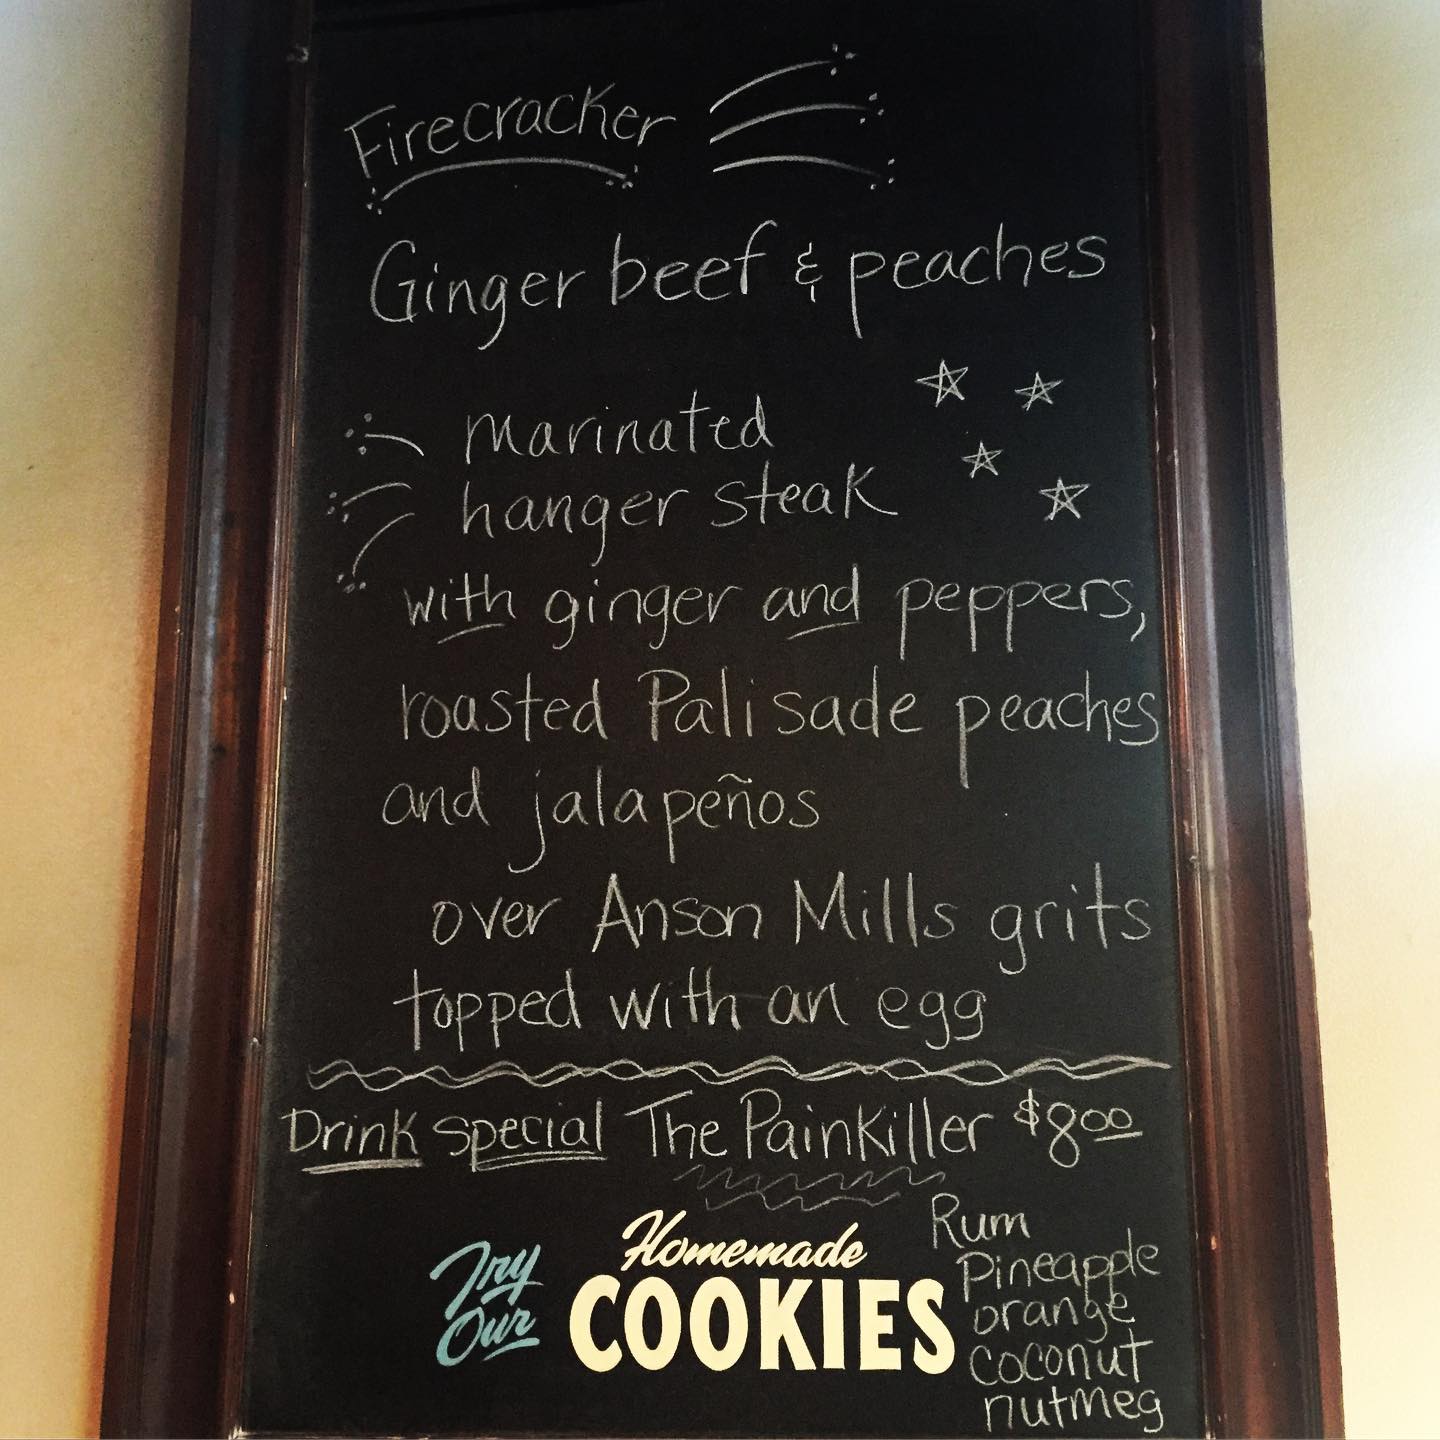 Firecracker
Ginger beef & peaches
marinated
hanger steak
with ginger and peppers,
roasted Palisade peaches
and jalapeños
over Anson Mills grits
topped with an egg
Drink special The Painkiller $8.00
Rum
Pineapple
orange
coconut
nutmeg
Try
Our
Homemade
COOKIES